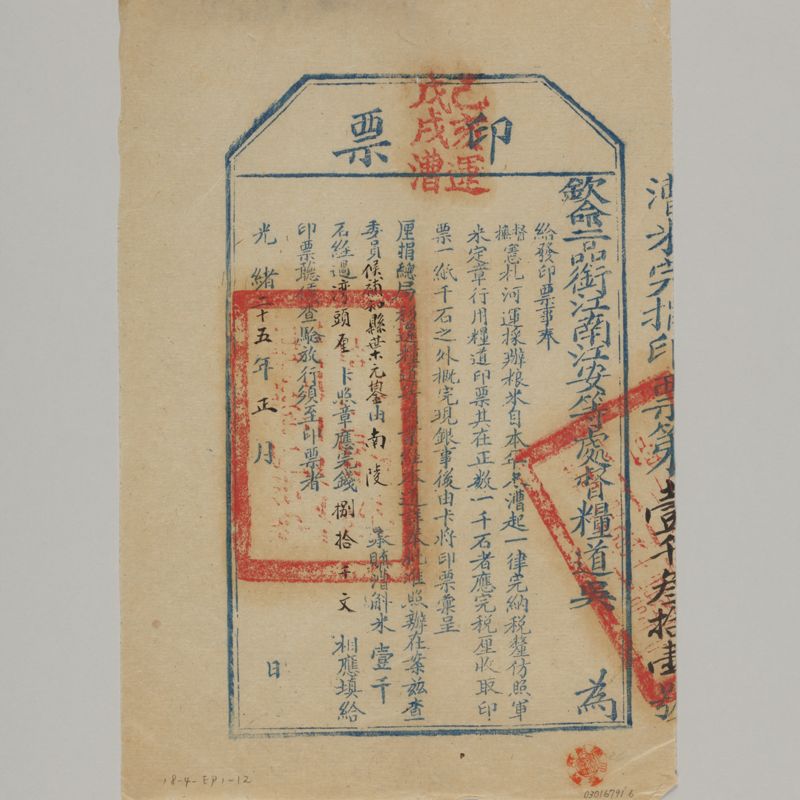 漕米完捐印票第壹千叁拾壹號
印票
己亥運
戊戌漕
欽命二品銜江南江安等處督糧道吳 為
給發印票事奉
督憲札河運採辦粮米自本年冬漕起一律完納稅釐仿照軍
米定章行用糧道印票其在正数一千石者應完税厘收取印
票一紙千石之外概完現銀事後由卡將印票彙呈
厘捐總局 照辦在案茲查
委員候補知縣葉元鋆由南陵 采購漕斛米壹千
石經過灣頭厘卡照章應完錢捌拾千文 相應填給
印票聽候查驗放行須至印票者
光緒二十五年正月 日
18-4-EP1-12
03016791 6